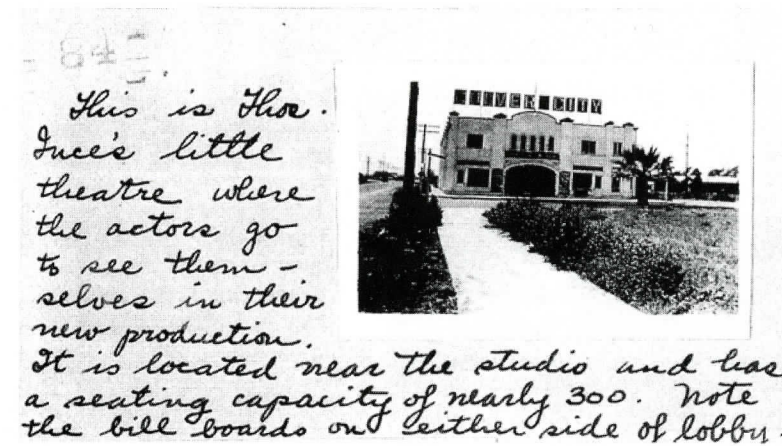 This is Thos.
Ince's little
theatre where
the actors go
to see them-
selves in their
new production.
It is located near the studio and has
a seating capacity of nearly 300. Note
the bill boards on either side of lobby.
CULVER CITY